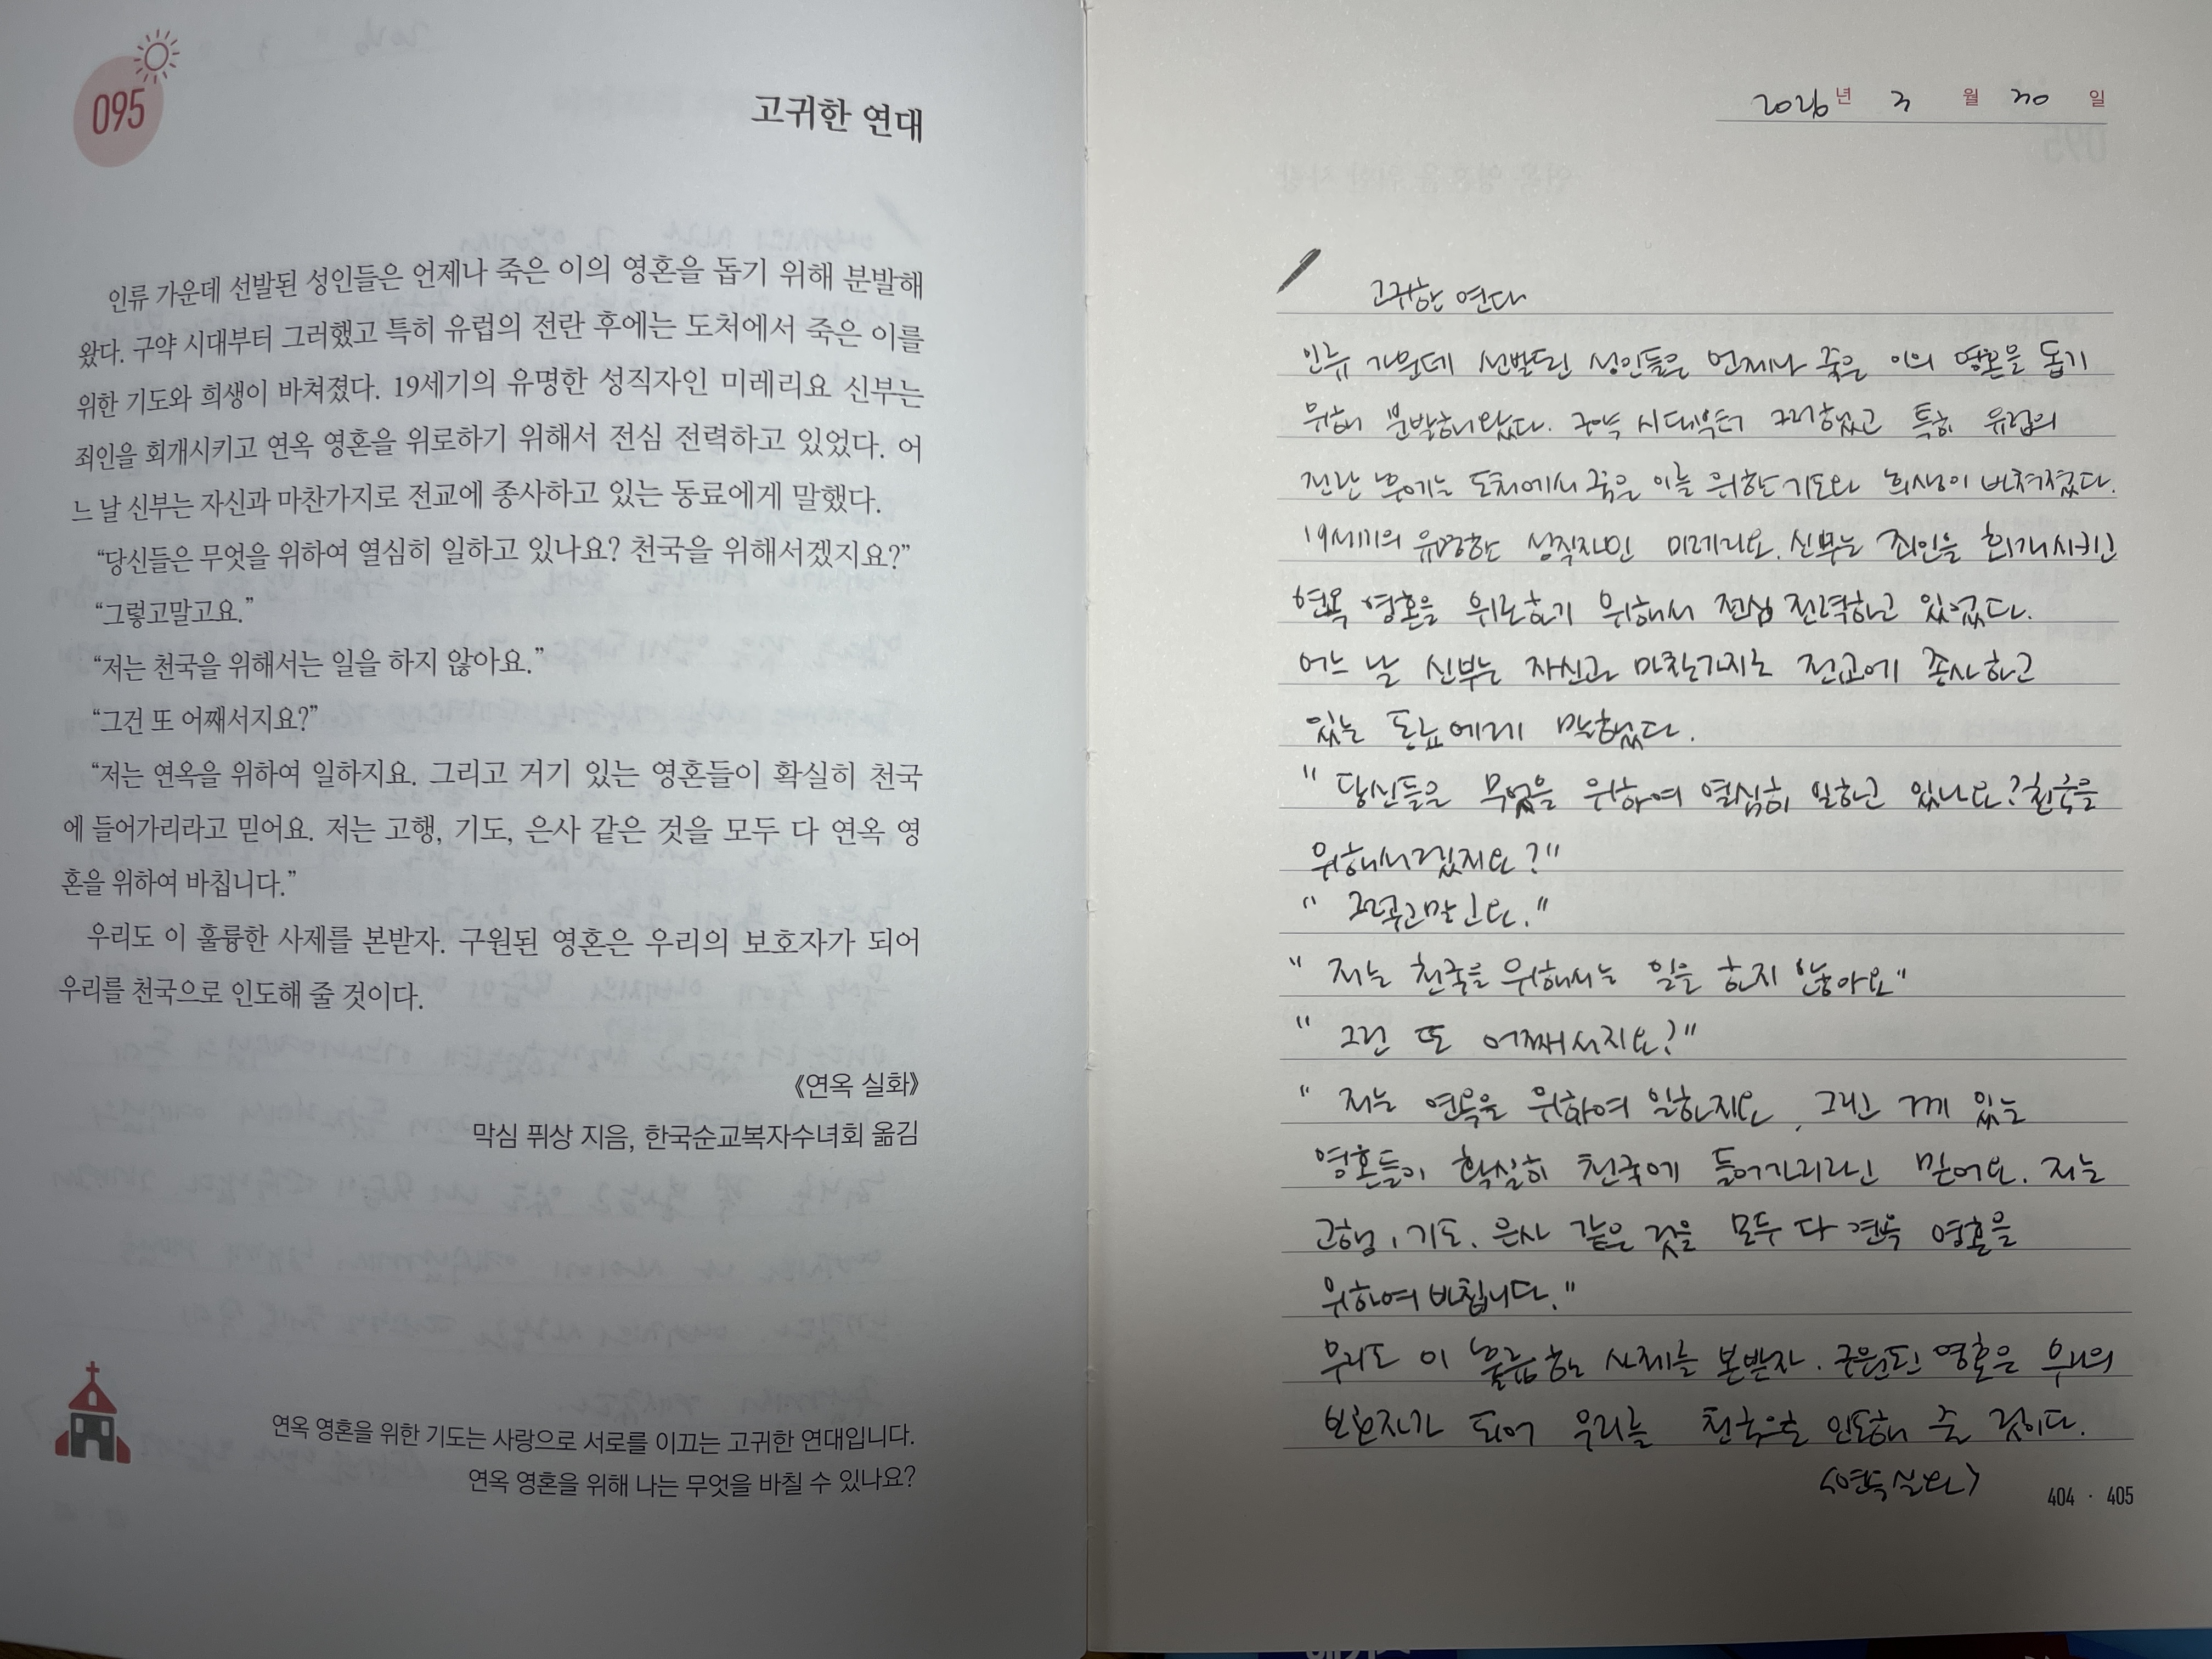 095
고귀한 연대
인류 가운데 선발된 성인들은 언제나 죽은 이의 영혼을 돕기 위해 분발해
왔다. 구약 시대부터 그러했고 특히 유럽의 전란 후에는 도처에서 죽은 이를
위한 기도와 희생이 바쳐졌다. 19세기의 유명한 성직자인 미레리요 신부는
죄인을 회개시키고 연옥 영혼을 위로하기 위해서 전심 전력하고 있었다. 어
느 날 신부는 자신과 마찬가지로 전교에 종사하고 있는 동료에게 말했다.
“당신들은 무엇을 위하여 열심히 일하고 있나요? 천국을 위해서겠지요?”
“그렇고말고요.”
“저는 천국을 위해서는 일을 하지 않아요.”
“그건 또 어째서지요?”
“저는 연옥을 위하여 일하지요. 그리고 거기 있는 영혼들이 확실히 천국
에 들어가리라고 믿어요. 저는 고행, 기도, 은사 같은 것을 모두 다 연옥 영
혼을 위하여 바칩니다.”
우리도 이 훌륭한 사제를 본받자. 구원된 영혼은 우리의 보호자가 되어
우리를 천국으로 인도해 줄 것이다.
《연옥 실화》
막심 퓌상 지음, 한국순교복자수녀회 옮김
연옥 영혼을 위한 기도는 사랑으로 서로를 이끄는 고귀한 연대입니다.
연옥 영혼을 위해 나는 무엇을 바칠 수 있나요?
2026년 3월 30일
고귀한 연대
인류 가운데 선발된 성인들은 언제나 죽은 이의 영혼을 돕기
위해 분발해왔다. 구약 시대부터 그러했고 특히 유럽의
전란 후에는 도처에서 죽은 이를 위한 기도와 희생이 바쳐졌다.
19세기의 유명한 성직자인 미레리요. 신부는 죄인을 회개시키고
연옥 영혼을 위로하기 위해서 전심 전력하고 있었다.
어느 날 신부는 자신과 마찬가지로 전교에 종사하고
있는 동료에게 말했다.
" 당신들은 무엇을 위하여 열심히 일하고 있나요? 천국을
위해서겠지요?"
" 그렇고말고요."
" 저는 천국을 위해서는 일을 하지 않아요"
" 그건 또 어째서지요?"
" 저는 연옥을 위하여 일하지요, 그리고 있는
영혼들이 확실히 천국에 들어가리라고 믿어요. 저는
고행, 기도, 은사 같은 것을 모두 다 연옥 영혼을
위하여 바칩니다."
우리도 이 훌륭한 사제를 본받자. 구원된 영혼은 우리의
보호자가 되어 우리를 천국으로 인도해 줄 것이다.
<연옥 실화>
404 · 405